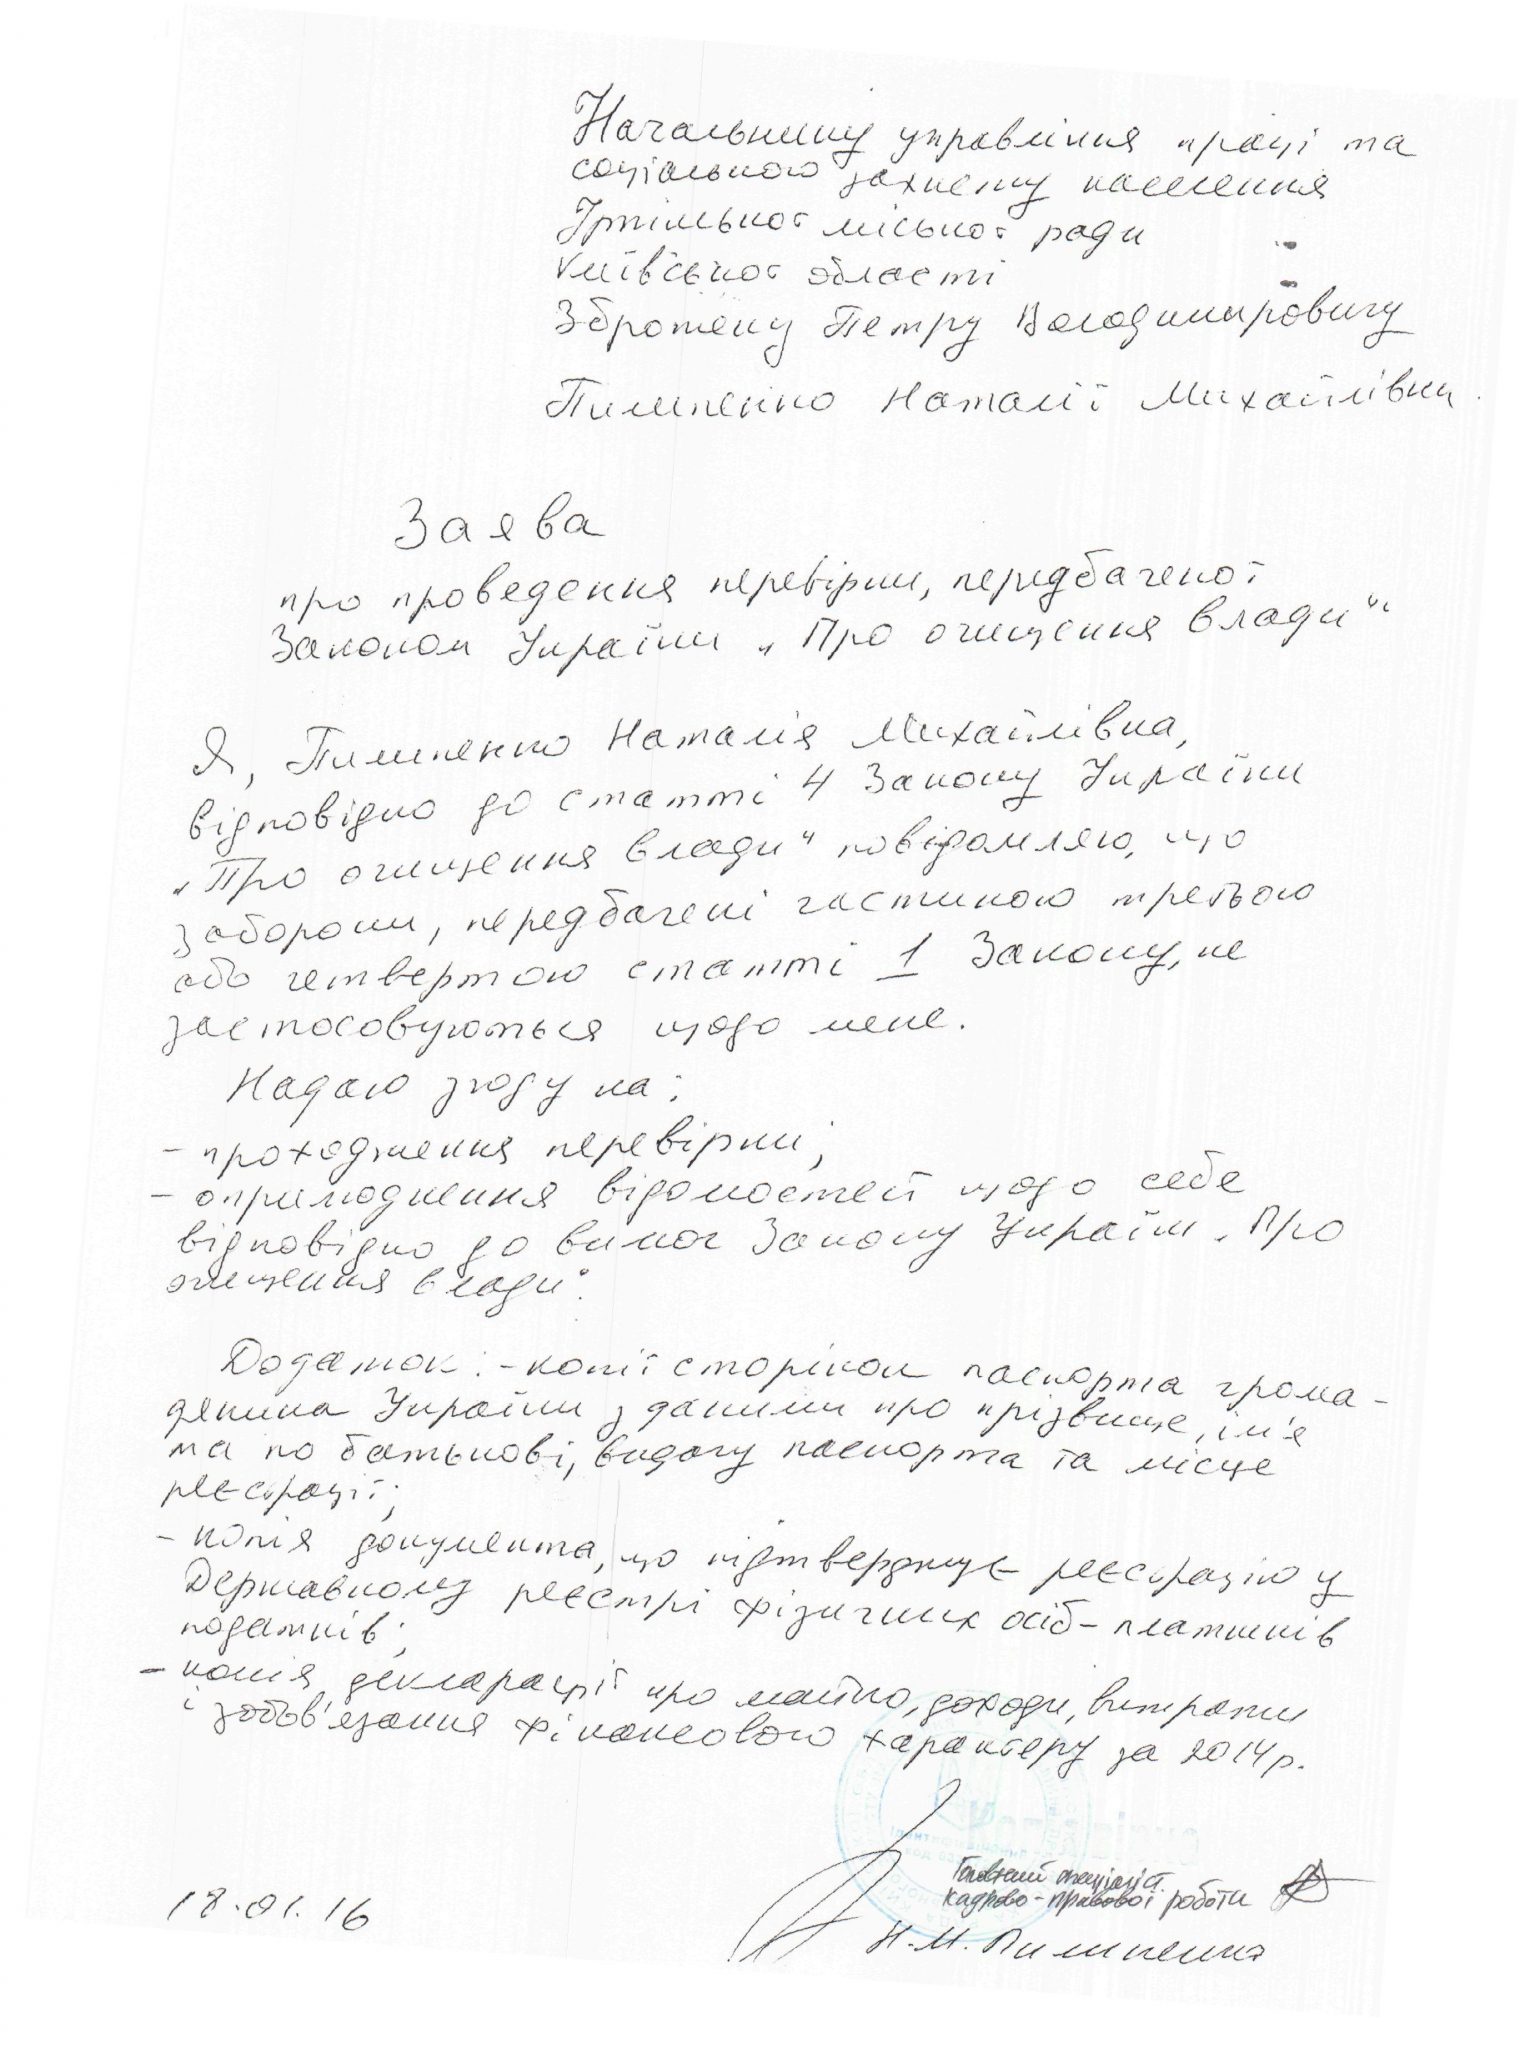 Начальнику управління праці та
соціального захисту населення
Ірпінської міської ради
Київської області
Збротєну Петру Володимировичу
Пилипенко Наталії Михайлівни.
Заява
про проведення перевірки, передбаченої
Законом України „Про очищення влади"
Я, Пилипенко Наталія Михайлівна,
відповідно до статті 4 Закону України
„Про очищення влади" повідомляю, що
заборони, передбачені частиною третьою
або четвертою статті 1 Закону, не
застосовуються щодо мене.
Надаю згоду на:
- проходження перевірки;
- оприлюднення відомостей щодо себе
відповідно до вимог Закону України „Про
очищення влади".
Додаток: - копії сторінок паспорта грома-
дянина України з даними про прізвище, ім'я
та по батькові, видачу паспорта та місце
реєстрації;
- копія документа, що підтверджує реєстрацію у
Державному реєстрі фізичних осіб - платників
податків;
- копія декларації про майно, доходи, витрати
і зобов'язання фінансового характеру за 2014 р.
Головний спеціаліст
кадрово-правової роботи
18.01.16
Н.М. Пилипенко